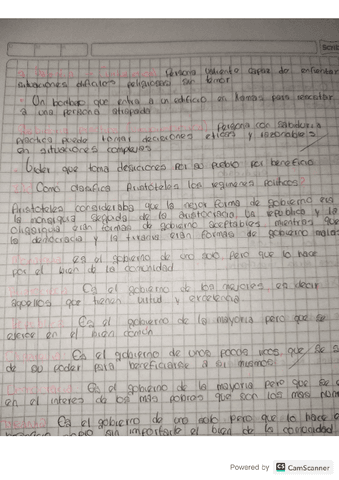 Persona valiente capaz de enfrentar
situaciones dificiles peligrosas sin temor
Un bombero que entra a un edificio en llamas para rescatar
a una persona atrapada
Persona con sabiduria
practica puede tomar decisiones eticas y razonables
en situaciones complejas
Lider que toma desiciones por su pueblo por beneficio
Como clasifica Aristoteles los regimenes politicos?
Aristoteles consideraba que la mejor forma de gobierno era
la monarquia seguida de la aristocracia. La republica y la
oligarquia eran formas de gobierno aceptables mientras que
la democracia y la tirania eran formas de gobierno malas
es el gobierno de uno solo pero que lo hace
por el bien de la comunidad
Es el gobierno de los mejores es decir
aquellos que tienen virtud y excelencia
Es el gobierno de la mayoria pero que se
ejerce en el bien común
Es el gobierno de unos pocos ricos que se
de su poder para beneficiarse a si mismos
Es el gobierno de la mayoria pero que se
en el interes de los mas pobres que son los mas
Es el gobierno de uno solo pero que lo hace
sin importarle el bien de la comunidad
Powered by CS CamScanner